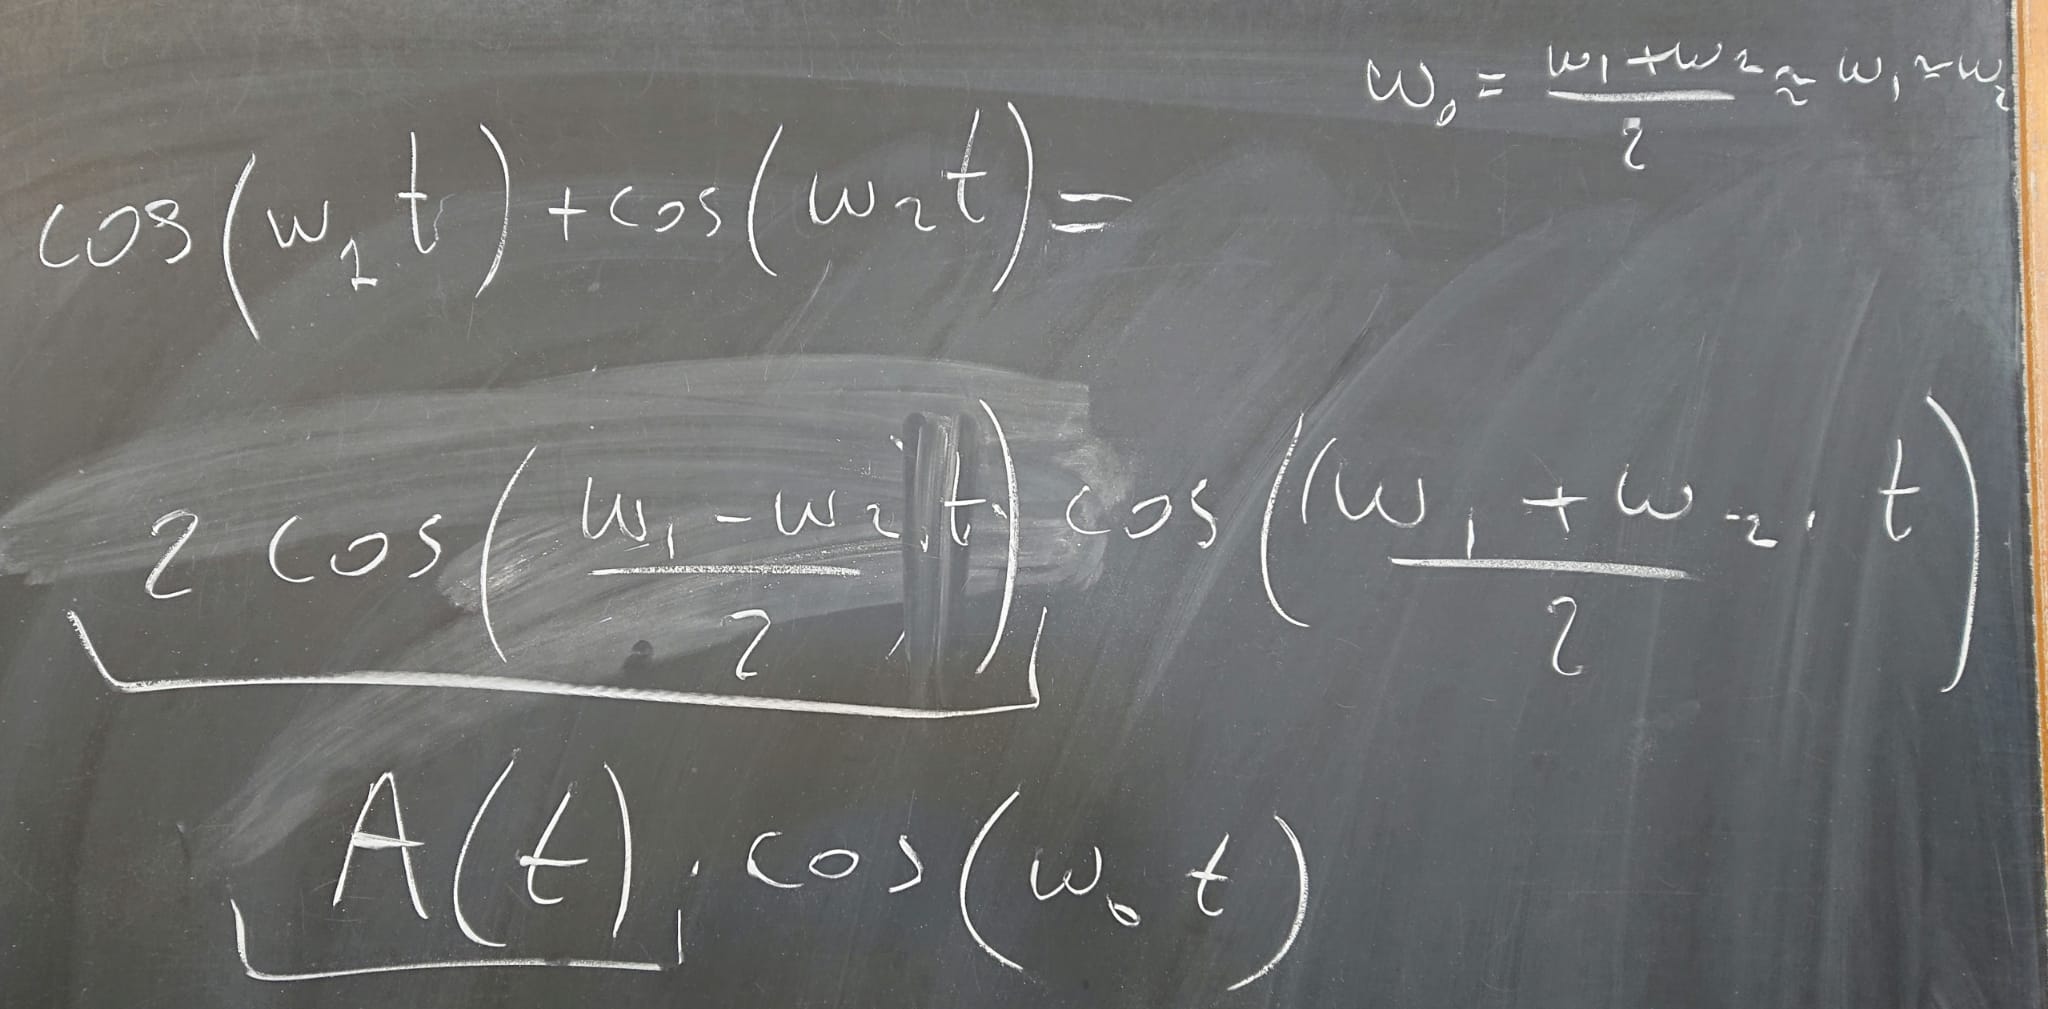 ω₀ = (ω₁+ω₂)/2 ≈ ω₁ ≈ ω₂
cos(ω₁t) + cos(ω₂t) =
2 cos((ω₁-ω₂)/2 · t) cos((ω₁+ω₂)/2 · t)
A(t) · cos(ω₀ t)